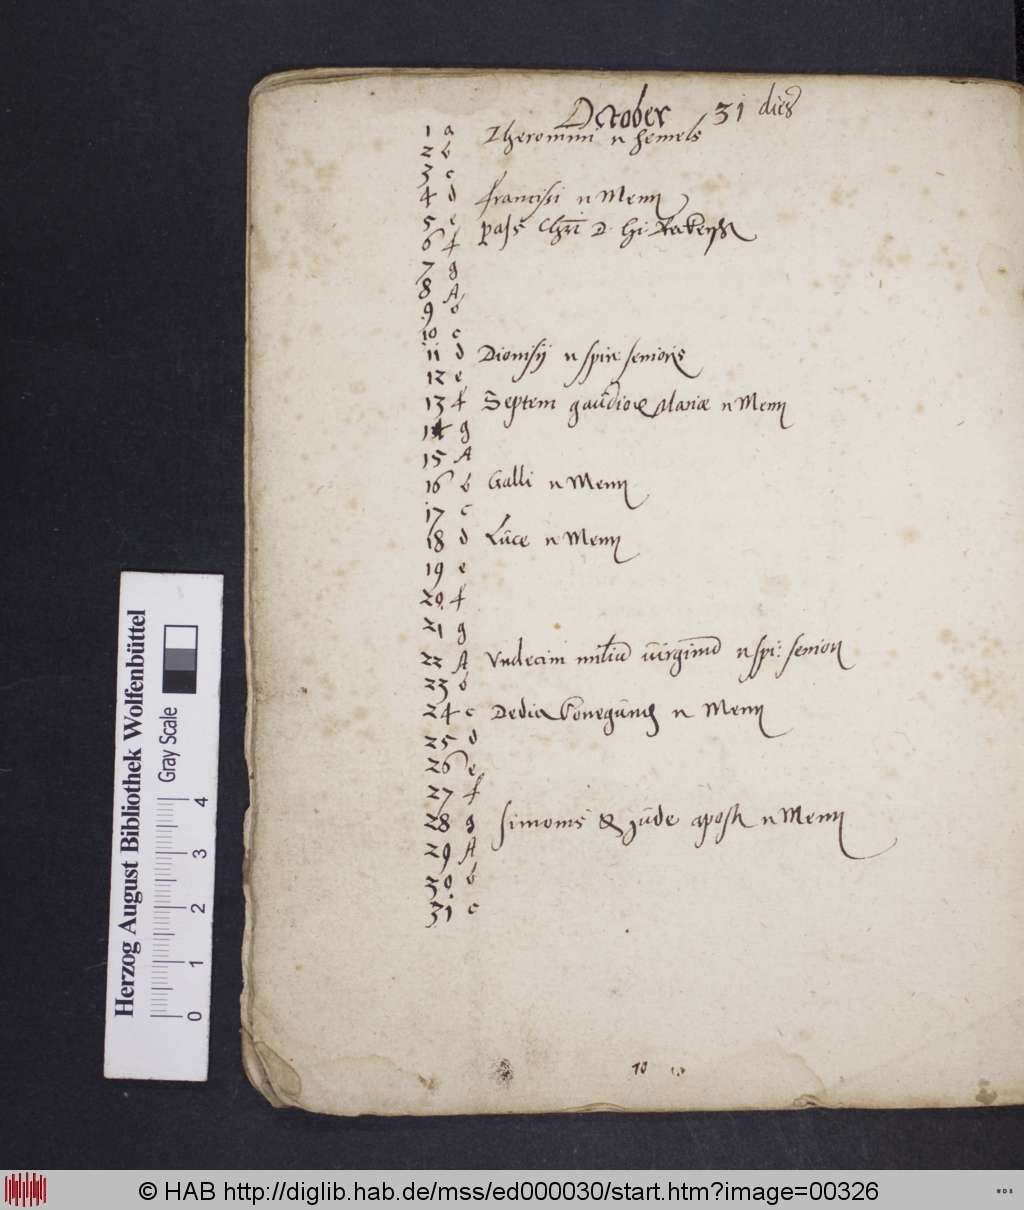 October 31 dies
1 a Iheronimi n hemels
2 b
3 c
4 d francisci n Menn
5 e
6 f pass Chri D. Hi.
7 g
8 A
9 b
10 c
11 d Dionisij n spir senioris
12 e
13 f Septem gaudiorum Mariae n Menn
14 g
15 A
16 b Galli n Menn
17 c
18 d Luce n Menn
19 e
20 f
21 g
22 A Vndecim miliu virginu n spi: senior
23 b
24 c Dedica konegund n Menn
25 d
26 e
27 f
28 g Simonis & Jude apostt n Menn
29 A
30 b
31 c
10
Herzog August Bibliothek Wolfenbüttel
Gray Scale
0 1 2 3 4
© HAB http://diglib.hab.de/mss/ed000030/start.htm?image=00326